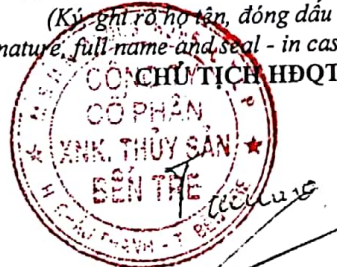 (Ký, ghi rõ họ tên, đóng dấu
nature, full name and seal - in cas
CHỦ TỊCH HĐQT
CÔNG TY
CỔ PHẦN
XNK. THỦY SẢN
BẾN TRE